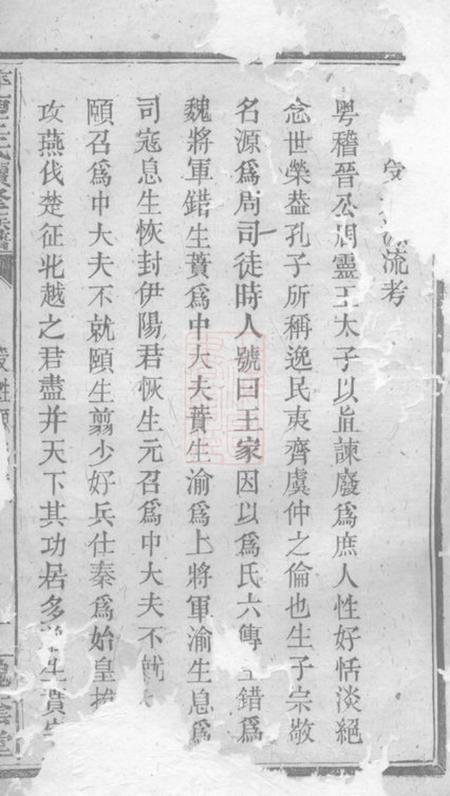 流考
粤稽晉公周靈王太子以直諫廢爲庶人性好恬淡絕
念世榮葢孔子所稱逸民夷齊虞仲之倫也生子宗敬
名源爲周司徒時人號曰王家因以爲氏六傳錯爲
魏將軍錯生蕡爲中大夫蕡生渝爲上將軍渝生息爲
司寇息生恢封伊陽君恢生元召爲中大夫不就
頤召爲中大夫不就頤生翦少好兵仕秦爲始皇
攻燕伐楚征北越之君盡并天下其功居多生賁生